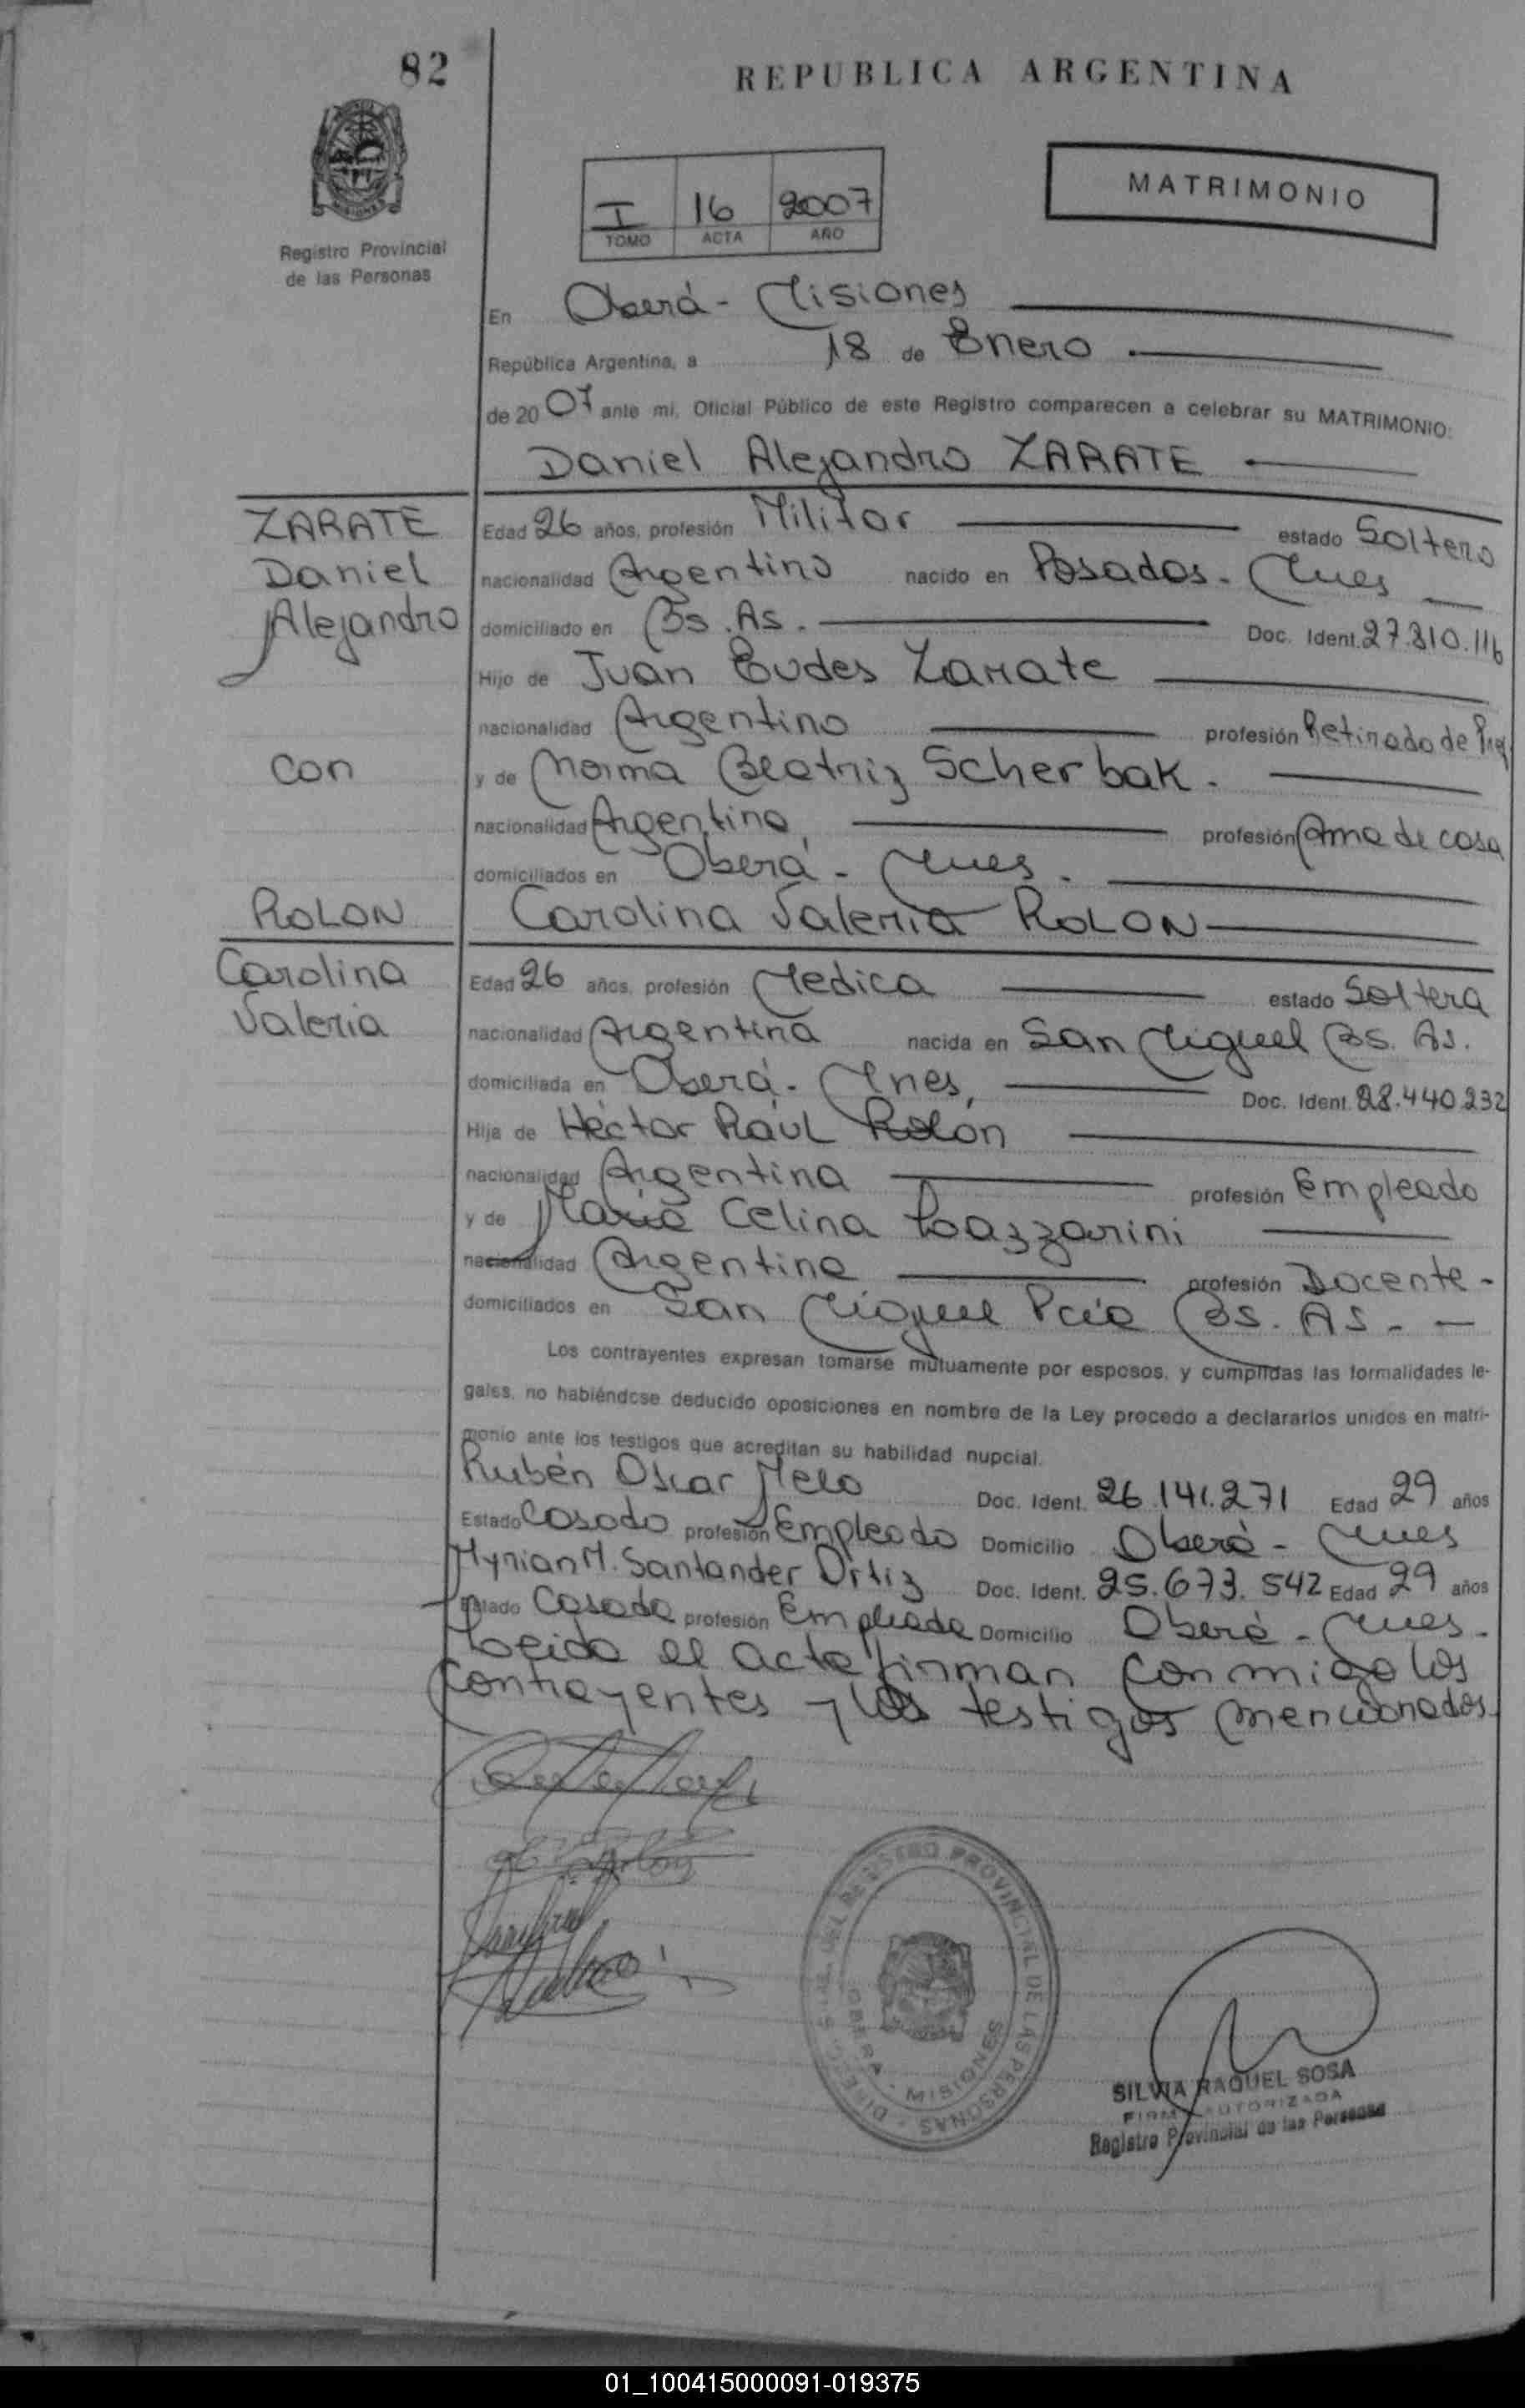 82
REPUBLICA ARGENTINA
MATRIMONIO
I 16 2007
TOMO ACTA AÑO
Registro Provincial
de las Personas
En Oberá - Misiones
República Argentina, a 18 de Enero
de 2007 ante mi, Oficial Público de este Registro comparecen a celebrar su MATRIMONIO:
Daniel Alejandro ZARATE
ZARATE
Daniel
Alejandro
con
ROLON
Carolina
Valeria
Edad 26 años, profesión Militar estado Soltero
nacionalidad Argentino nacido en Posadas - Mnes
domiciliado en Bs. As. Doc. Ident. 27.310.116
Hijo de Juan Eudes Zarate
nacionalidad Argentino profesión Retirado de
y de Norma Beatriz Scherbak.
nacionalidad Argentina profesión Ama de casa
domiciliados en Oberá - Mnes.
Carolina Valeria ROLON
Edad 26 años, profesión Medica estado Soltera
nacionalidad Argentina nacida en San Miguel Bs. As.
domiciliada en Oberá - Mnes, Doc. Ident. 28.440.232
Hija de Héctor Raúl Rolón
nacionalidad Argentina profesión Empleado
y de María Celina Lazzarini
nacionalidad Argentina profesión Docente -
domiciliados en San Miguel Pcia Bs. As - -
Los contrayentes expresan tomarse mutuamente por esposos, y cumplidas las formalidades le-
gales, no habiéndose deducido oposiciones en nombre de la Ley procedo a declararlos unidos en matri-
monio ante los testigos que acreditan su habilidad nupcial.
Rubén Oscar Melo Doc. Ident. 26.141.271 Edad 29 años
Estado Casado profesión Empleado Domicilio Oberá - Mnes
Myrian M. Santander Ortiz Doc. Ident. 25.673.542 Edad 29 años
Estado Casada profesión Empleada Domicilio Oberá - Mnes.
Leida el acta firman conmigo los
contrayentes y los testigos mencionados
DEL REGISTRO PROVINCIAL DE LAS PERSONAS
OBERA - MISIONES
SILVIA RAQUEL SOSA
FIRMA AUTORIZADA
Registro Provincial de las Personas
01_100415000091-019375